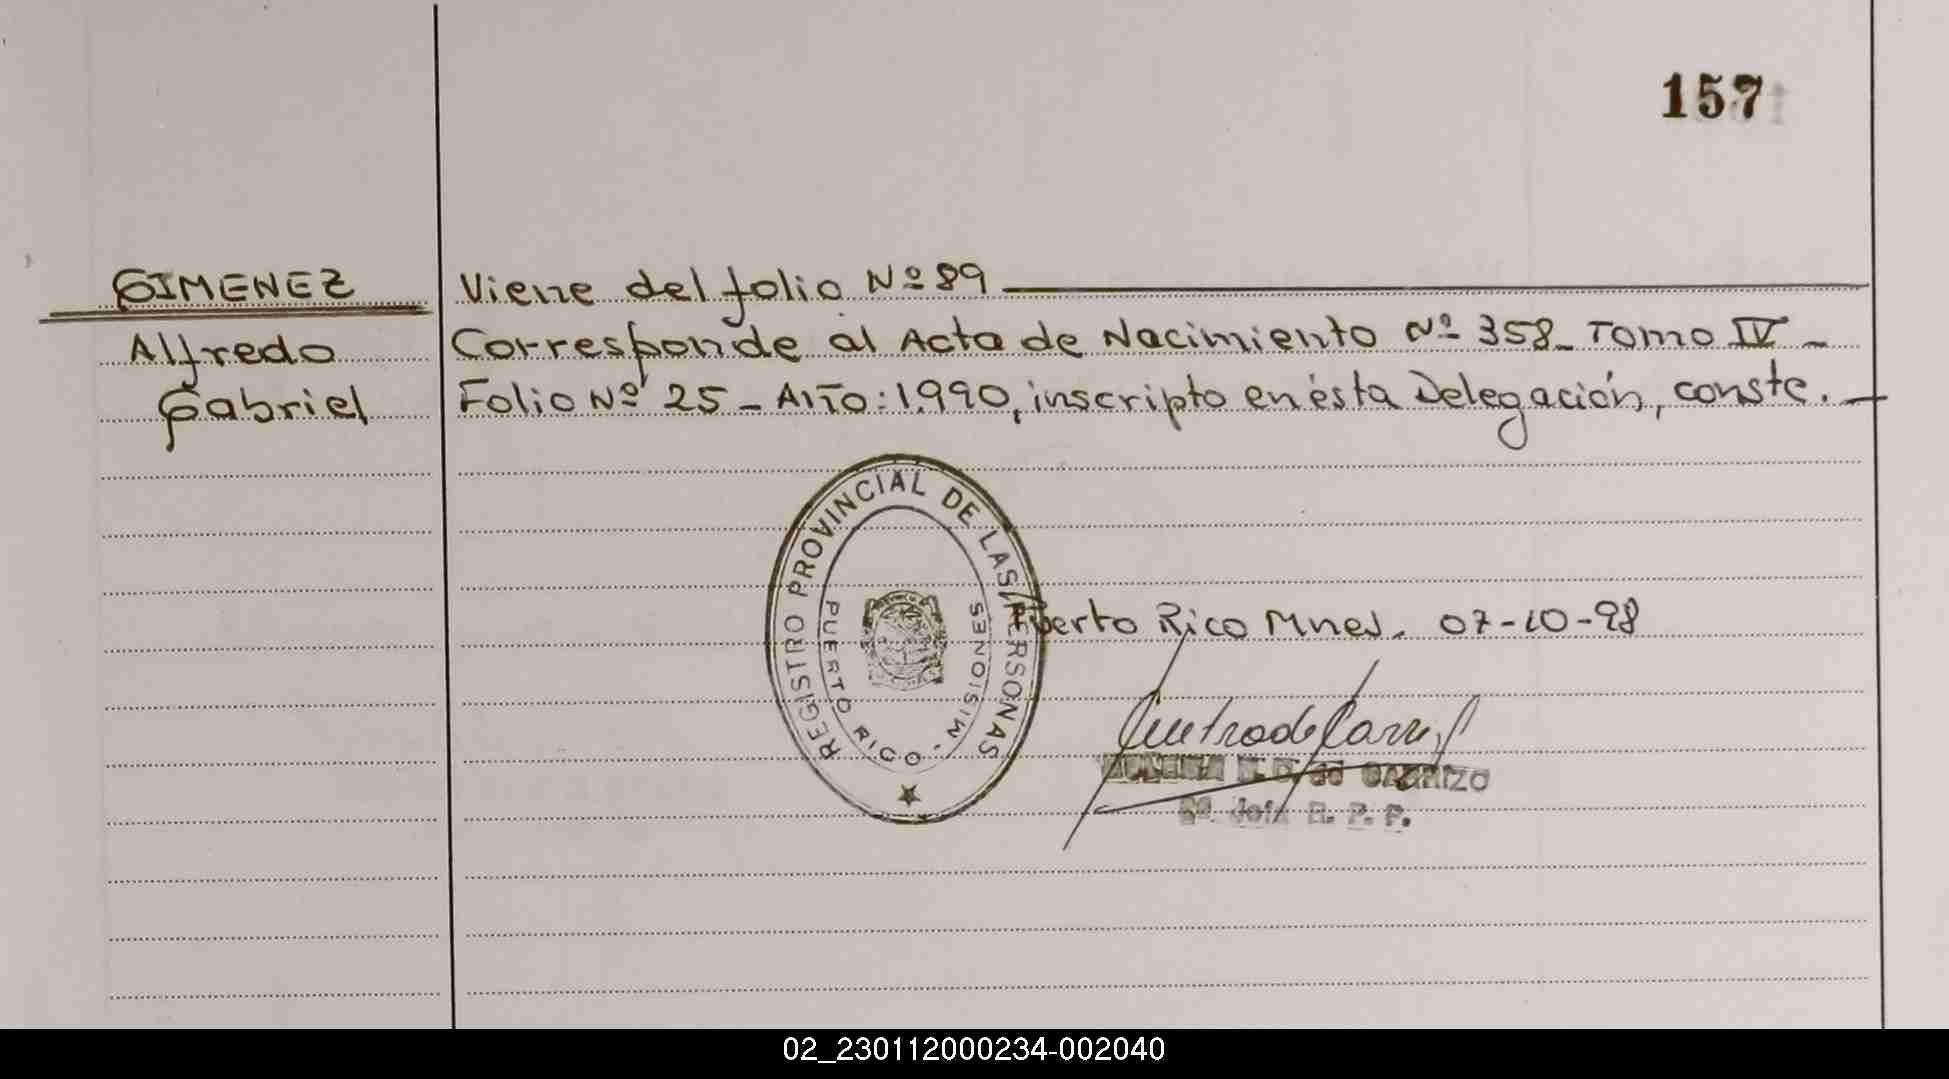 157
GIMENEZ
Alfredo
Gabriel
Viene del folio Nº 89
Corresponde al Acta de Nacimiento Nº 358_ Tomo IV _
Folio Nº 25 _ Año: 1.990, inscripto en ésta Delegación, conste. _
REGISTRO PROVINCIAL DE LAS PERSONAS
PUERTO RICO - MISIONES
Puerto Rico Mnes. 07-10-98
de CARRIZO
Jefe R. P. P.
02_230112000234-002040